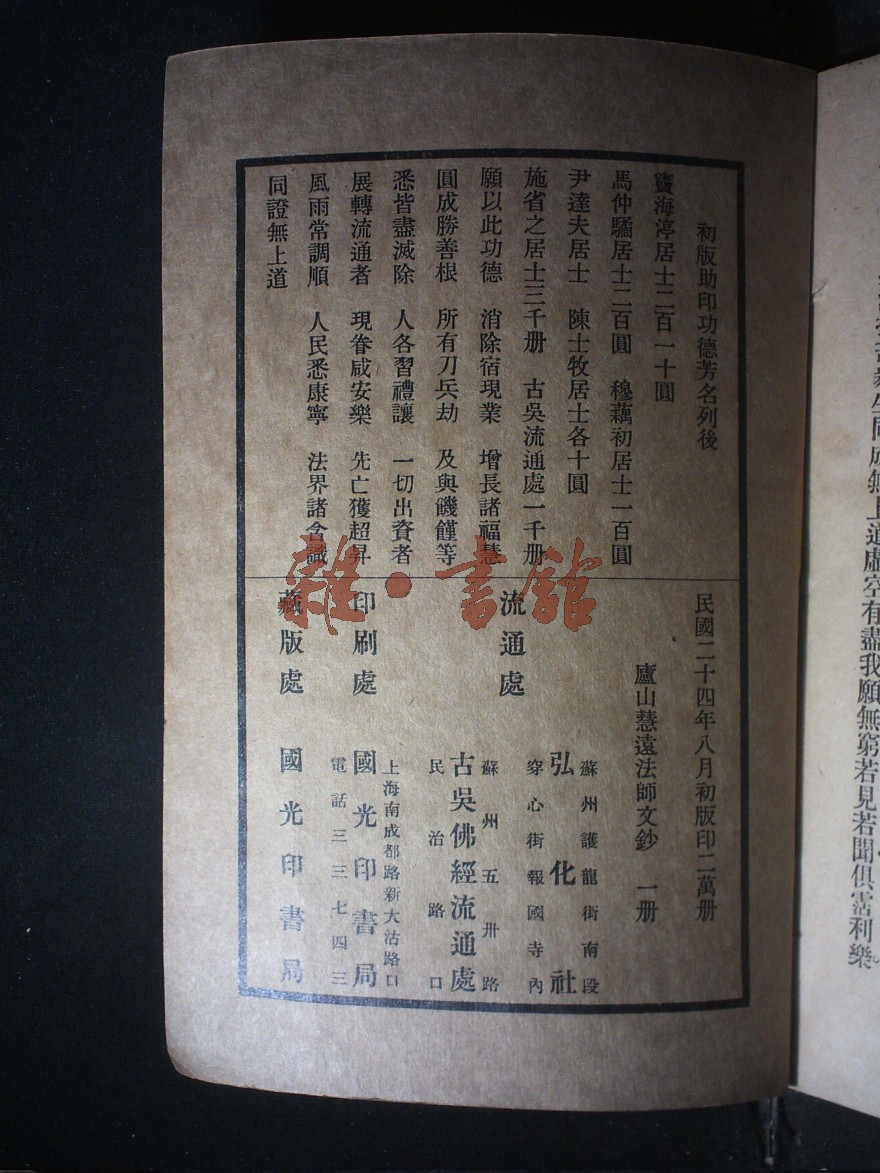 初版助印功德芳名列後
竇海渟居士二百一十圓
馬仲驈居士二百圓　穆藕初居士一百圓
尹達夫居士　陳士牧居士各十圓
施省之居士三千册　古吳流通處一千册
願以此功德　消除宿現業　增長諸福慧
圓成勝善根　所有刀兵劫　及與饑饉等
悉皆盡滅除　人各習禮讓　一切出資者
展轉流通者　現眷咸安樂　先亡獲超昇
風雨常調順　人民悉康寧　法界諸含識
同證無上道
民國二十四年八月初版印二萬册
廬山慧遠法師文鈔　一册
流通處
蘇州護龍街南段
弘化社
穿心街報國寺內
蘇州五卅路
古吳佛經流通處
民治路口
印刷處
上海南成都路新大沽路口
國光印書局
電話三三七四三
藏版處　國光印書局
雜·書館
生同成無上道虛空有盡我願無窮若見若聞俱霑利樂